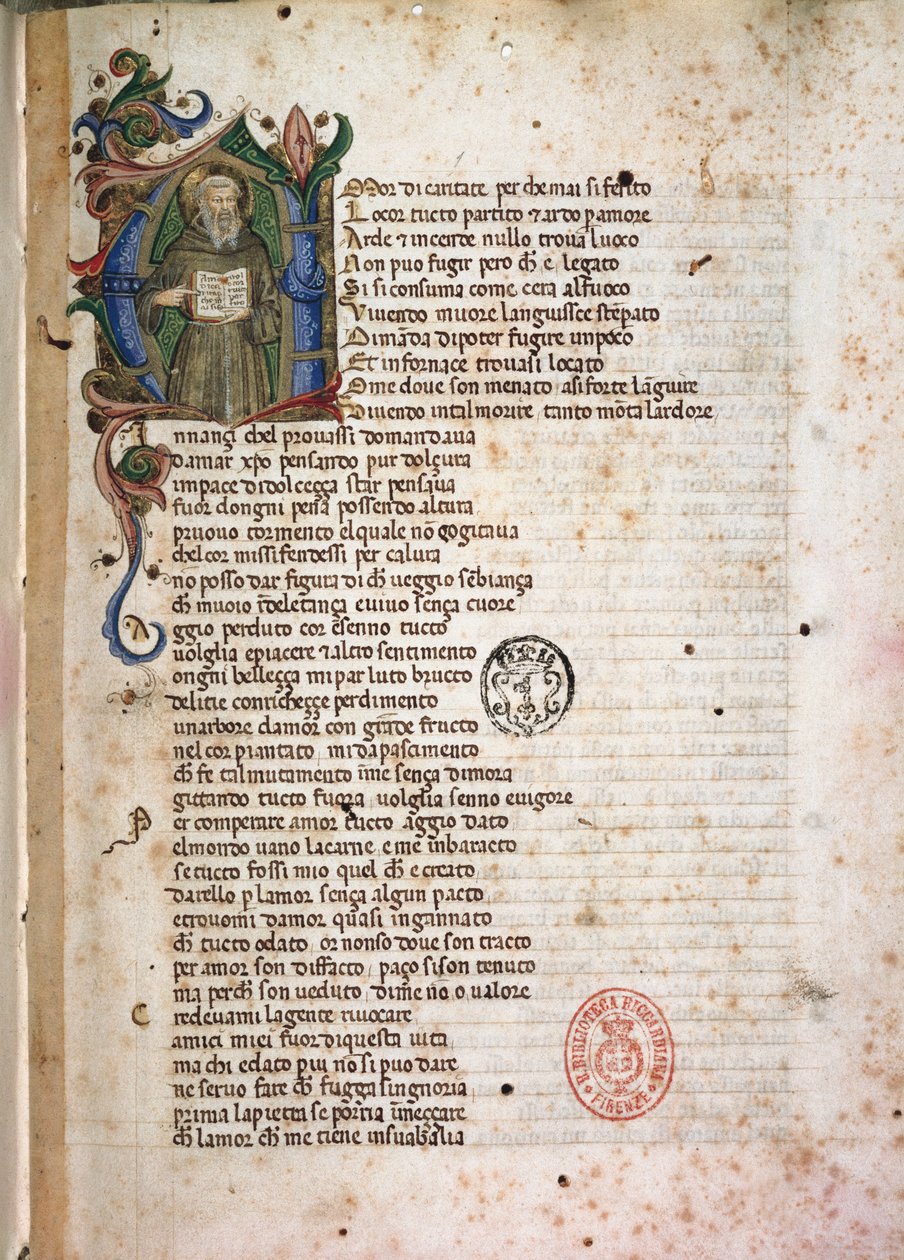 Amor di caritate perche mai si ferito
Lo cor tucto partito ⁊ ardo p amore
Arde ⁊ incende nullo trova luoco
Non puo fugir pero ch̄ e legato
Si si consuma come cera alfuoco
Vivendo muore languissce stēp̄ato
Dimāda dipoter fugire un pōco
Et infornace trovasi locato
Ome dove son menato asi forte lāguire
Vivendo intal morire tanto mōta lardore
Innançi chel provassi domandava
damar xp̄o pensando pur dolçura
impace di dolceçça star pensava
fuor dongni pena possendo altura
pruovo tormento elquale nō gogitava
chel cor missi fendessi per calura
nō posso dar figura di ch̄ veggio sēbiança
ch̄ muoio īdelectança e vivo sença cuore
Aggio perduto cor e senno tucto
volglia e piacere ⁊ altro sentimento
ongni belleçça mi par luto brucco
delitie con richeççe perdimento
unarbore damor con grāde fructo
nel cor piantato mi da pascimento
ch̄ fe tal mutamento īme sença dimora
gittando tucto fuora volglia senno e vigore
Per comperare amor tucto aggio dato
el mondo vano la carne e me in baracto
se tucto fossi mio quel ch̄ e creato
darello p lamor sença algun pacto
e trovomi damor quasi ingannato
ch̄ tucto o dato or nonso dove son tracto
per amor son diffacto paço si son tenuto
ma perch̄ son veduto di me nō o valore
Credevami la gente rivocare
amici miei fuor di questa vita
ma chi e dato piu nō si puo dare
ne servo fare ch̄ fugga singnoria
prima la pietra se porria īmeççare
ch̄ lamor ch̄ me tiene in sua balia
R. BIBLIOTECA RICCARDIANA
FIRENZE